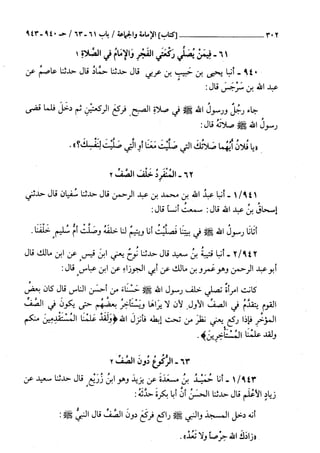 ٣٠٢ ـــــــــــــــ [كتاب] الإمامة والجماعة / باب ٦١-٦٣ / حـ ٩٤٠-٩٤٣
٦١ - فيمَنْ يُصَلِّي رَكْعَتَي الفَجْرِ والإمَامُ في الصَّلاةِ ١
٩٤٠ - أنبا يحيى بن حَبيبِ بن عربي قال حدثنا حمَّادٌ قال حدثنا عاصم عن
عبد الله بن سَرْجَسَ قال:
جاء رجُلٌ ورسولُ الله ﷺ في صلاة الصبح فركعَ الركعتَينِ ثم دخَلَ فلما قضى
رسولُ الله ﷺ صلاتَهُ قال:
«يا فُلانُ أيُّهما صَلاتُكَ التي صَلَّيتَ مَعَنا أو التي صَلَّيْتَ لِنَفْسِكَ؟».
٦٢ - المُنْفَرِدُ خَلْفَ الصَّفِّ ٢
١/٩٤١ - أنبا عبدُ الله بن محمد بن عبد الرحمن قال حدثنا سُفيان قال حدثني
إسحاقُ بنُ عبد الله قال: سمعتُ أنساً قال:
أتانا رسولُ الله ﷺ في بيتنا فصلَّيتُ أنا ويتيمٌ لنا خلفَهُ وصلَّتْ أُمُّ سُليمٍ خلْفَنا.
٢/٩٤٢ - أنبا قتيبةُ بنُ سعيد قال حدثنا نُوحٌ يعني ابنَ قيسٍ عن ابن مالك قال
أبو عبد الرحمن وهو عَمرو بن مالك عن أبي الجوزاءِ عن ابن عباسٍ قال:
كانت امرأةٌ تصلي خلفَ رسولِ الله ﷺ حَسْنَاءَ من أحسَنِ الناس قال كان بعضُ
القوم يتقدَّمُ في الصفِّ الأولِ لأن لا يَراهَا ويَسْتأخِرُ بعضُهُم حتى يكونَ في الصَّفِّ
المؤخَّرِ فإذا ركع يعني نظرَ من تحتِ إبطهِ فأنزل الله ﴿وَلَقَدْ عَلِمْنَا المُسْتَقْدِمِينَ منكم
ولقد عَلِمْنا المُسْتَأْخِرِينَ﴾.
٦٣ - الرُّكوعُ دُونَ الصَّفِّ ٢
١/٩٤٣ - أنبا حُمَيدُ بنُ مَسعَدَةَ عن يزيدَ وهو ابنُ زُرَيْعٍ قال حدثنا سعيد عن
زيادٍ الأعْلَمِ قال حدثنا الحسَنُ أنَّ أبا بكرةَ حدَّثَهُ:
أنه دخلَ المسجدَ والنبي ﷺ راكع فركَعَ دونَ الصَّفِّ قال النبيُّ ﷺ:
«زادَكَ الله حِرْصاً ولا تَعُدْ».